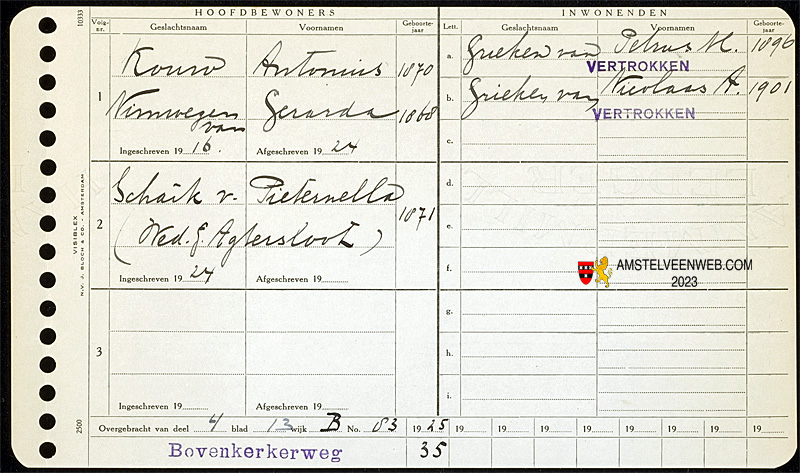 HOOFDBEWONERS
INWONENDEN
Volg-nr.
Geslachtsnaam
Voornamen
Geboorte-jaar
Lett.
Geslachtsnaam
Voornamen
Geboorte-jaar
10333
1
Kouw Antonius 1870
Nimwegen van Gerarda 1868
Ingeschreven 19 16. Afgeschreven 19 24
a. Grieken van Petrus M. 1896
VERTROKKEN
b. Grieken van Nicolaas A. 1901
VERTROKKEN
c.
2
Schaik v. Pieternella 1871
(Wed. G. Agtersloot)
Ingeschreven 19 24 Afgeschreven 19
d.
e.
f.
AMSTELVEENWEB.COM
2023
3
Ingeschreven 19 Afgeschreven 19
g.
h.
i.
VISIBLEX
N.V. J. BLOCH & CO. - AMSTERDAM
2500
Overgebracht van deel 4 blad 13 wijk B No. 83 19 25 19 19 19 19 19 19 19 19
Bovenkerkerweg 35